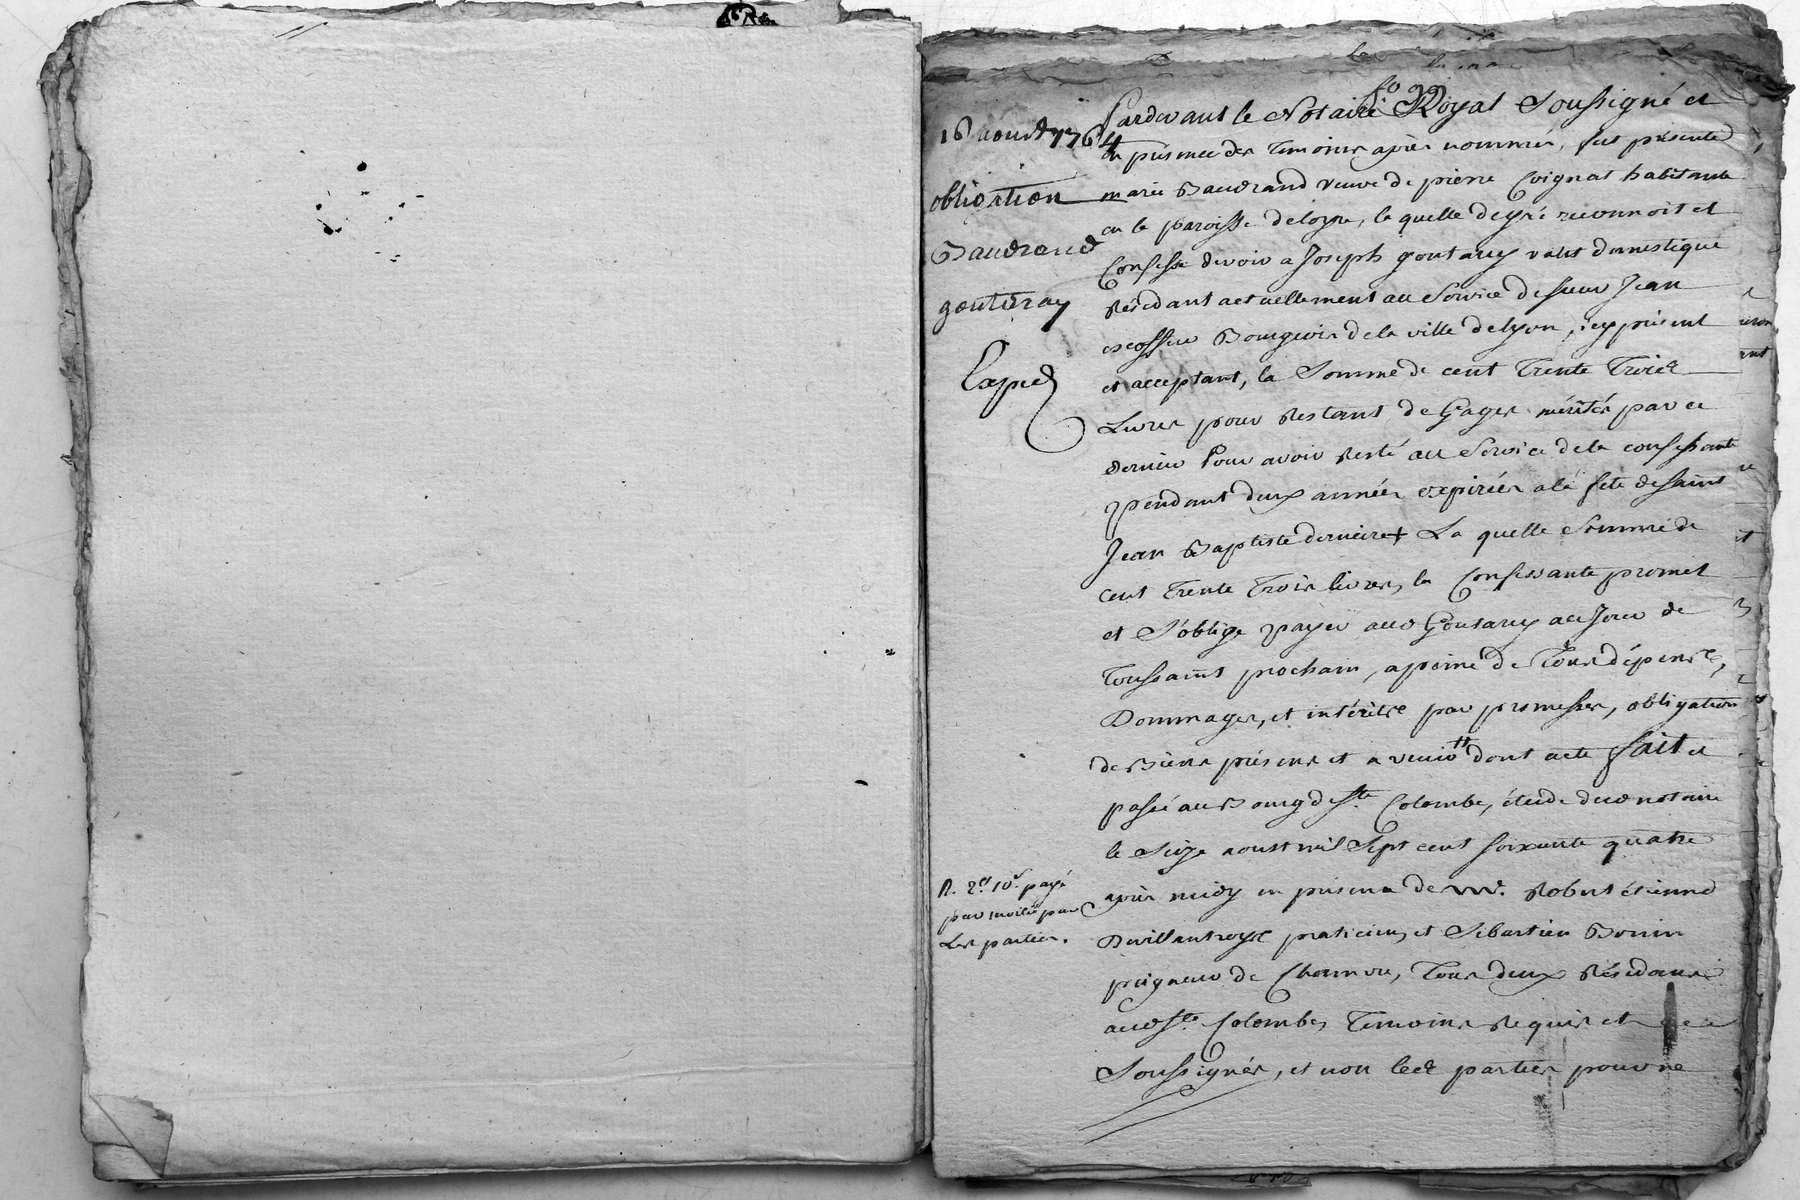 fo 99
16 aoust 1764
obligation
Baudrand
goutaray
Exped
Pardevant le Notaire Royal Soussigné et
en présence des temoins après nommés, fut présente
marie Baudrand veuve de pierre Coignat habitante
en la paroisse de loyre, la quelle de gré reconnoit et
Confesse devoir a Joseph goutaray valet domestique
Résidant actuellement au Service de sieur Jean
Bourgeois de la ville de lyon, icy présent
et acceptant, la Somme de cent Trente Trois
Livres pour Restant de Gages mérités par ce
dernier Pour avoir Resté au Service de la confessante
pendant deux années expirées a la fête de saint
Jean Baptiste derniere + La quelle Somme de
cent Trente Trois livres, la Confessante promet
et s'oblige payer aud Goutaray au Jour de
Toussaint prochain, a peine de Tous dépens,
Dommages, et intérêts par promesses, obligation
de Biens présens et a venir # dont acte fait et
passé au Bourg de ste Colombe, étude dud notaire
le Seize aoust mil Sept cent soixante quatre
après midy en présence de mr. Robert étienne
Devillantroys praticien, et Sébastien Bonin
peigneur de Chanvre, Tous deux Résidans
aud ste. Colombe, Temoins Requis et
Soussignés, et non lesd parties pour ne
R. 2# 10s payé
par moitié par
Les parties.